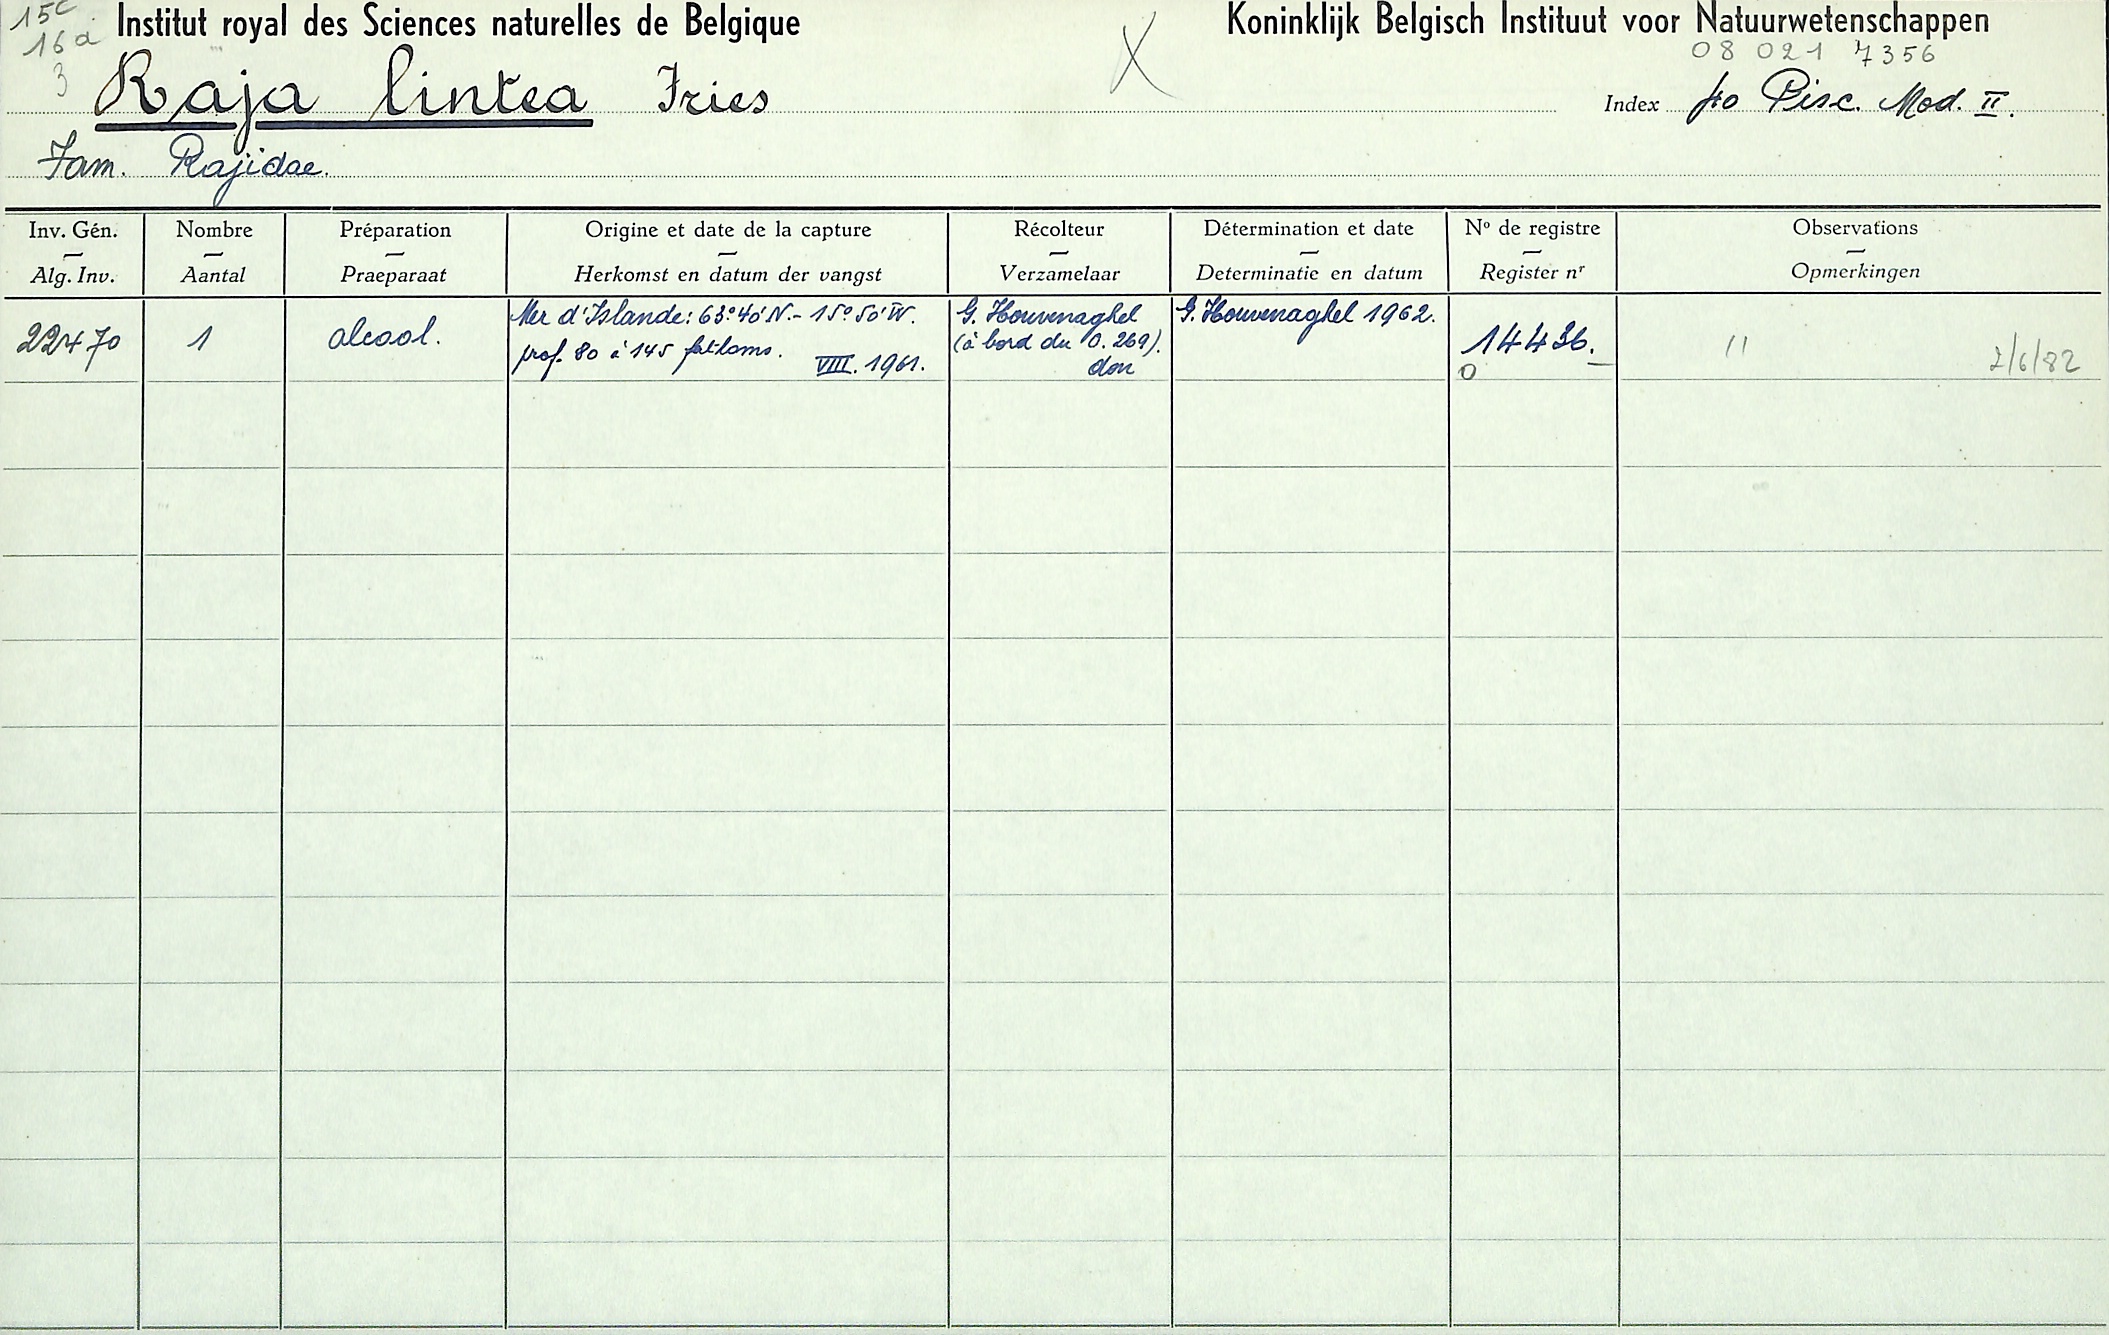 15c
16a
3
Institut royal des Sciences naturelles de Belgique
Koninklijk Belgisch Instituut voor Natuurwetenschappen
08 021 7356
Raja lintea Fries
X
Index fio Pisc. Mod. II.
Fam. Rajidae.
Inv. Gén.
Alg. Inv.
Nombre
Aantal
Préparation
Praeparaat
Origine et date de la capture
Herkomst en datum der vangst
Récolteur
Verzamelaar
Détermination et date
Determinatie en datum
Nº de registre
Register nr
Observations
Opmerkingen
22470
1
alcool.
Mer d'Islande: 63°40'N.- 15°50'W.
prof. 80 à 145 fathoms.
VIII. 1961.
G. Houvenaghel
(à bord du O. 269).
don
G. Houvenaghel 1962.
14436.
O
11
2/6/82